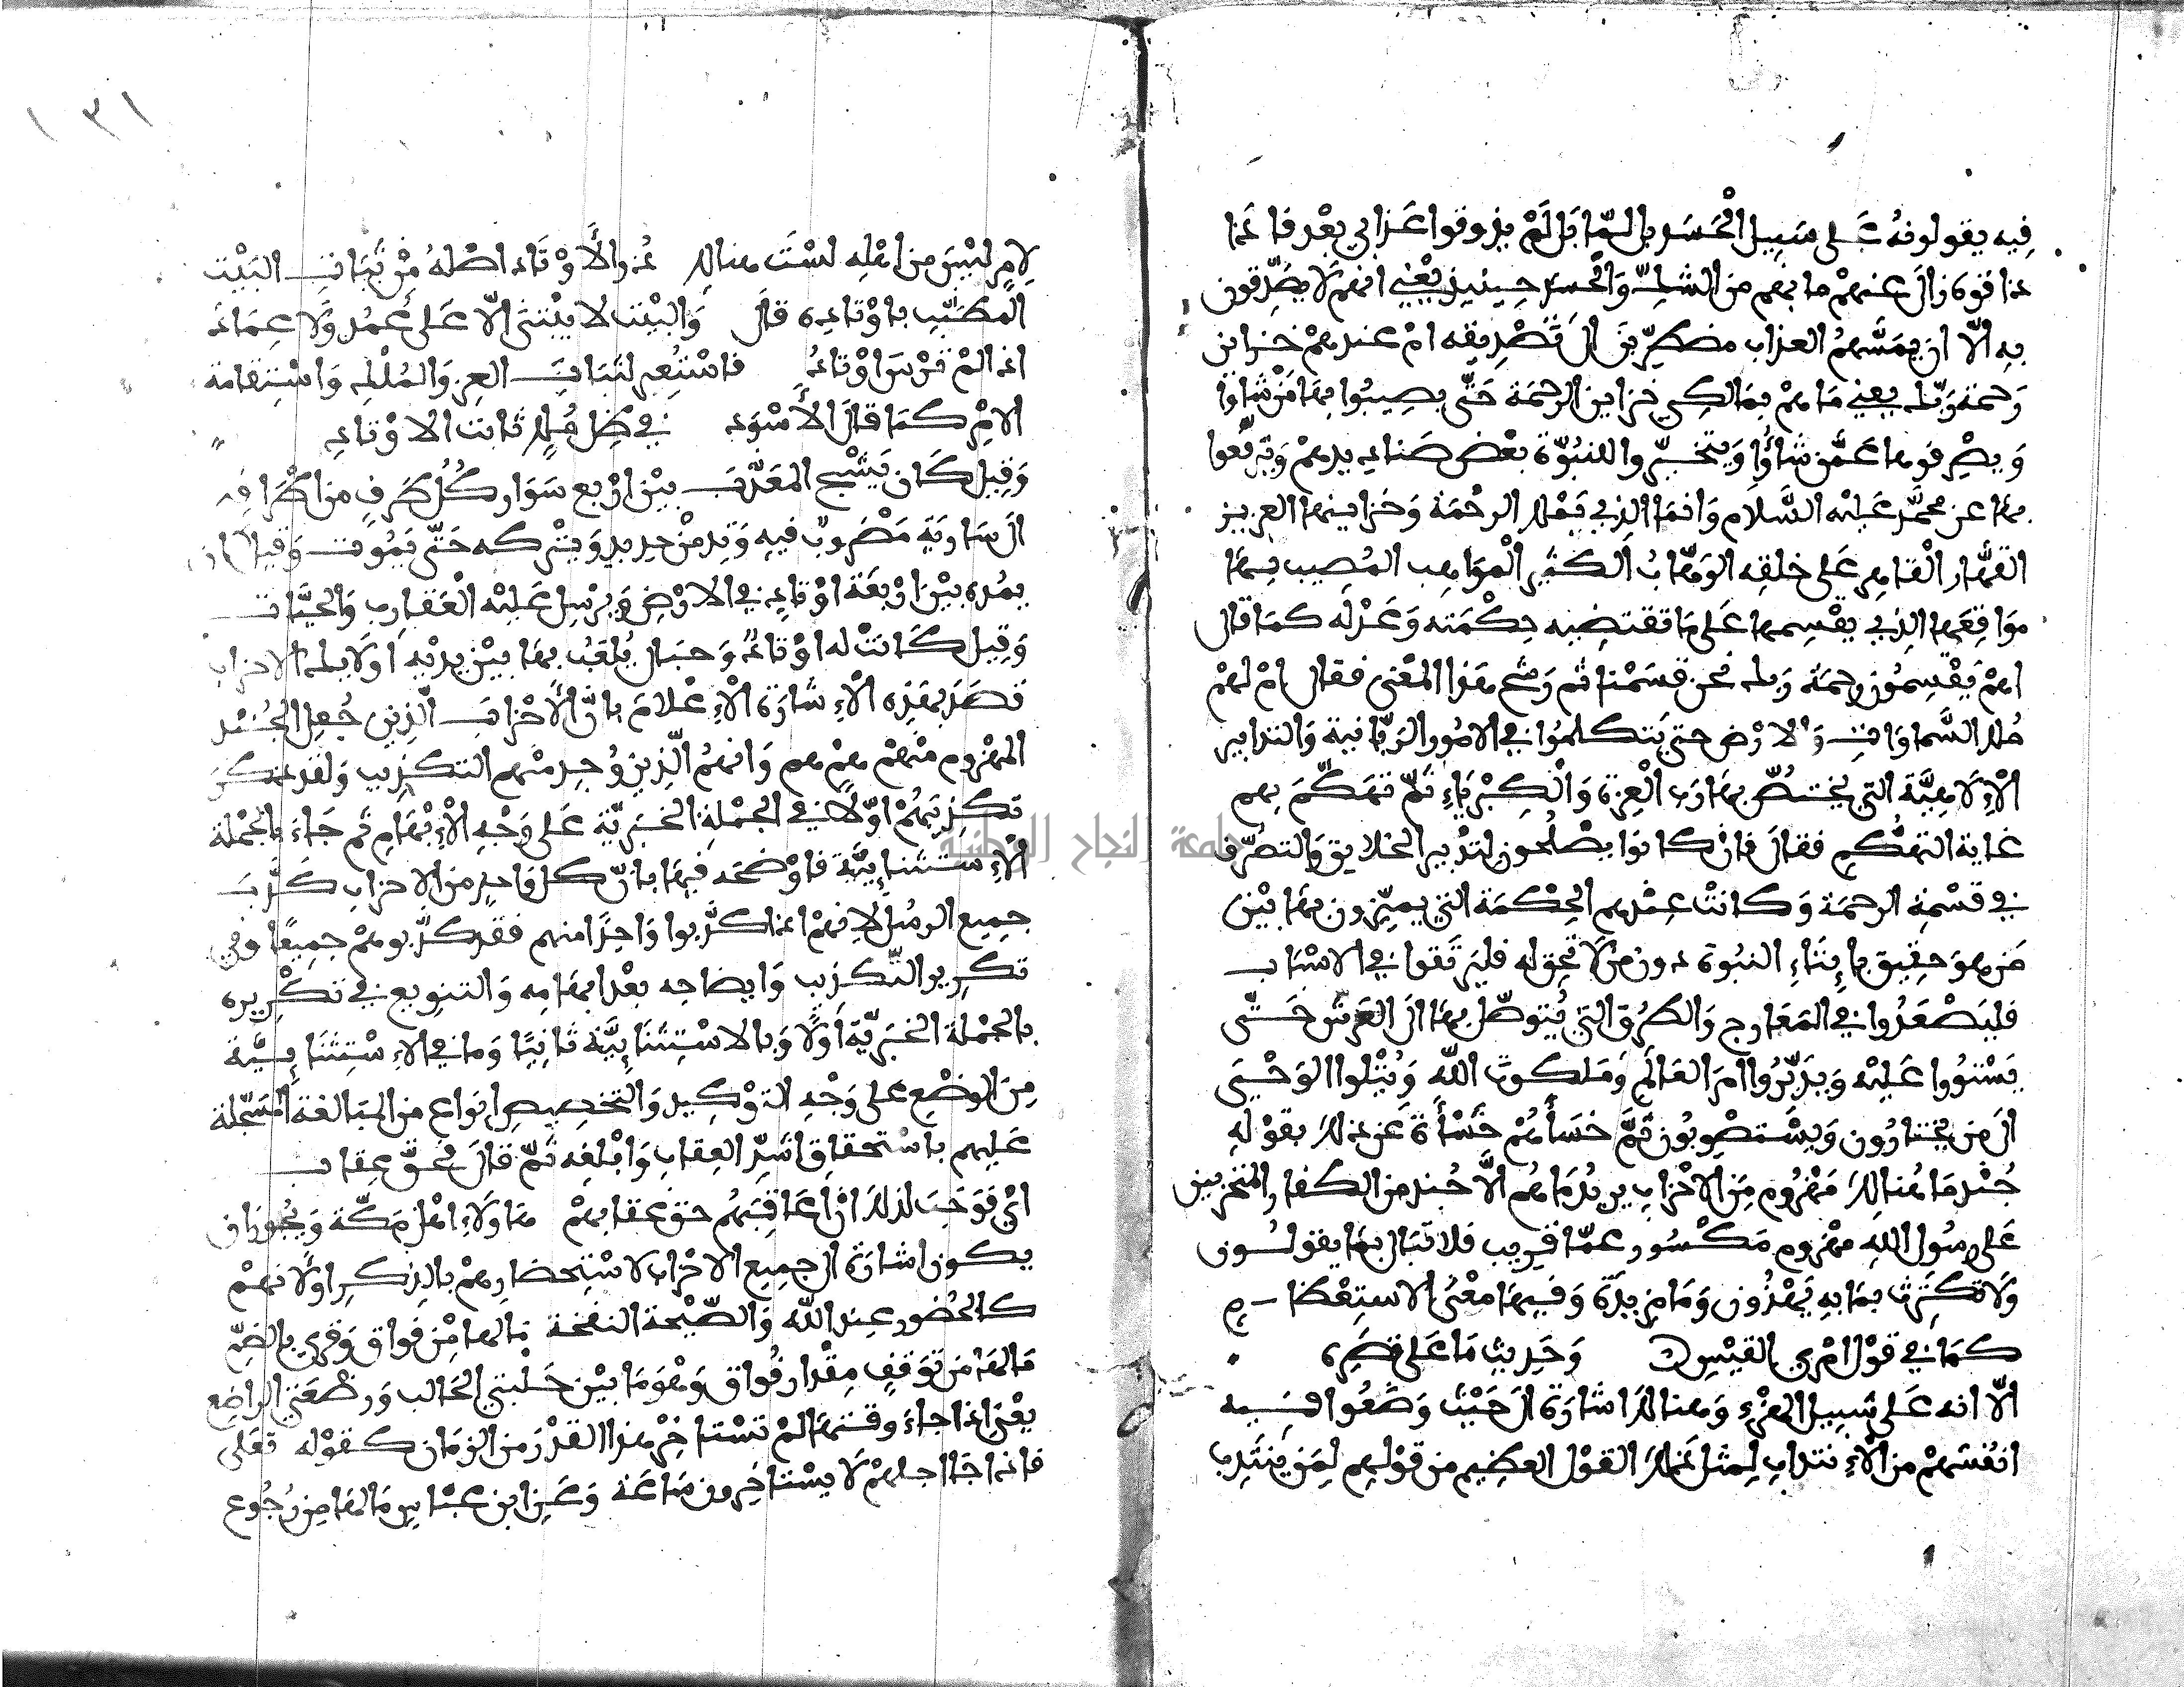 فِيه يقولونهُ عَلى سَبِيل الْحَسَد بل لمّا بَل لَمْ يذوقوا عَذابي بعْد فاذا
ذاقوه زالَ عنهمْ ما بهم من الشك وَالحسد حينيذ يعْني انهمْ لا يصَدِّقون
به الّا ان يمسَّهمُ العذاب مضطرّين الى تصْديقه امْ عندهمْ خزاين
رحمة ربك يعني مَا همْ بمَالكي خزاين الرحْمَة حَتى يصيبُوا بهَا مَنْ شَاؤا
وَيصْرفوها عَمَّن شاؤا وَيتخيّروا للنبُوّة بعْض صَناديدهمْ وَيترفّعوا
بهَا عن محمَّد عَليْه السَّلام وَانمَا الذي يَمْلك الرحْمَة وَخزاينهَا العزيز
القهَّار القاهر عَلى خلقه الوَهّابُ الكثير الْموَاهب المُصيب بهَا
موَاقعَها الذي يقْسِمها عَلى مَا تقتضيه حِكْمَته وَعَدْله كمَا قال
اهمْ يَقْسِمُون رحمَة ربك نحن قسَمْنا ثم رشح هذا المعْنى فقال امْ لهمْ
مُلك السَّماوَات وَالارْض حتى يتكلمُوا في الامُور الرَّبّانية وَالتدابير
الْإلاهِيَّة التي يختصُّ بهَا رَب الْعِزة وَالْكِبْرِيَاءِ ثمّ تهَكَّمَ بهم
غاية التهكُّم فقالَ فان كانوا يصْلحُون لتدْبير الخلايق وَالتصُرّف
في قسْمة الرحمَة وَكانتْ عنْدهم الحِكْمَة التي يميّزون بهَا بَيْن
من هوَ حقِيق بإيتَاءِ النبُوة دون مَنْ لَا تحِق له فليرْتَقوا في الاسْبَاب
فليَصْعَدُوا في المَعَارج وَالطرُق التي يُتوصَّل بهَا الى العَرش حَتّى
يَسْتوُوا عَليْه وَيدَبِّرُوا امْرَ العَالَم وَمَلكوت اللّه وَيُنْزلوا الوَحْيَ
الى مَن يخْتارُون وَيسْتصْوبُون ثمَّ خسَأهُمْ خَسْأةً عَن ذلك بقوْله
جُنْد مَا هُنالك مَهْزوم مِنَ الاحْزاب يريدُ مَاهم الّا جُند من الكفار المتحزبين
عَلى رسُول الله مهْزوم مَكْسُور عمّا قريب فلا تبَال بمَا يقولون
وَلَا تكْترِث بمَا به يَهْذُون وَمَا مزيدَة وَفيهَا معْنى الاستِعْظام
كمَا في قوْل امْرئ القيْس وَحَديث مَا عَلى قصره
الّا انه عَلى سَبيل الهزْءِ وَهنالكَ اشارَة الى حَيْث وَضَعُوا فيه
انفُسَهمْ من الْانتداب لِمثل ذلكَ القوْل العظيم من قوْلهم لِمَن ينتَدب
١٣١
لامرٍ ليْسَ من اهْله لسْتَ هنالك ذُو الْأوْتَاد اصْلهُ مِنْ ثَبَات البَيْت
المطنَّب باوْتاده قالَ وَالبيْت لا يُبْتنى الّا عَلى عُمُد وَلا عِمَاد
اذا لمْ ترْسَ اوْتادُ فاسْتعير لثبَات العِز وَالمُلْك وَاسْتِقامة
الامْر كمَا قالَ الأسْوَد في ظِل مُلك ثابت الاوْتاد
وَقيل كَان يَشْبح المعَذَّبَ بيْن ارْبع سَوَارٍ كُلُّ طرفٍ من اطْرافه
الى سَاريَة مَضْروبٌ فيه وَتِد منْ حديد وَيتركه حَتّى يَمُوت وَقيل كان
يمُده بيْن ارْبعَة اوْتادٍ في الارْض وَيرْسل عَليْه الْعَقارب وَالحيَّات
وَقيل كَانتْ له اوْتادٌ وَحبَال يُلعَبُ بهَا بيْن يديْه اولايك الاحزاب
قصَد بهَذه الْإشارة الْإعْلامَ بانّ الأحْزابَ الّذين جُعل الجُنْد
المهْزوم منْهمْ همْ هم وَانهمُ الّذين وُجد منْهم التكذيب وَلقد ذكَرَ
تكذيبَهُمْ اوّلاً في الجمْلة الخبَريّة عَلى وَجْه الْإبْهَام ثم جَاءَ بالجمْلة
الْإستثنائيَّة فاوْضحَه فيهَا بانّ كل وَاحدٍ من الاحزاب كذّبَ
جميع الرسُل لانهمْ اذا كذَّبوا وَاحِدًا منهم فقدْ كذَّبوهمْ جميعًا وفي
تكرير التّكذيب وَايضاحه بعْد ابهَامه وَالتنويع في تكْريره
بالجمْلة الخبَريّة أوّلًا وَبالاسْتِثنَائيَّة ثانيًا وَما في الاسْتِثنَائيَّة
مِنَ الوضْع عَلى وَجْه التوْكِيد وَالتخصِيصِ انوَاع من المبَالغة المسَجّلة
عَليهم باسْتحقاق اشدّ العِقاب وَابْلغِه ثمَّ قالَ فحَقَّ عقاب
ايْ فوَجَبَ لذلكَ انْ أعَاقبَهُم حق عقابهمْ هَاؤلاءِ اهْل مَكّة وَيجُوز ان
يكون اشارَة الى جميع الاحْزاب لاسْتِحضارهمْ بالذكرِ او لانهمْ
كالحُضور عند اللّه وَالصَّيْحة النفخة مالها مِنْ فواق وَقرئ بالضمّ
مَالهَا من توَقفٍ مِقْدار فُوَاق وَهْوَ مَا بيْن حَلْبتي الحَالب وَرضْعَتي الراضِع
يعْني اذا جاءَ وقتهَا لمْ تسْتاخرْ هذا القدْرَ من الزمَان كقوْله تعَلى
فاذا جَا اجلهمْ لَا يسْتاخرون سَاعَة وَعَن ابن عبّاس مَا لهَا من رُجُوع
جامعة النجاح الوطنية